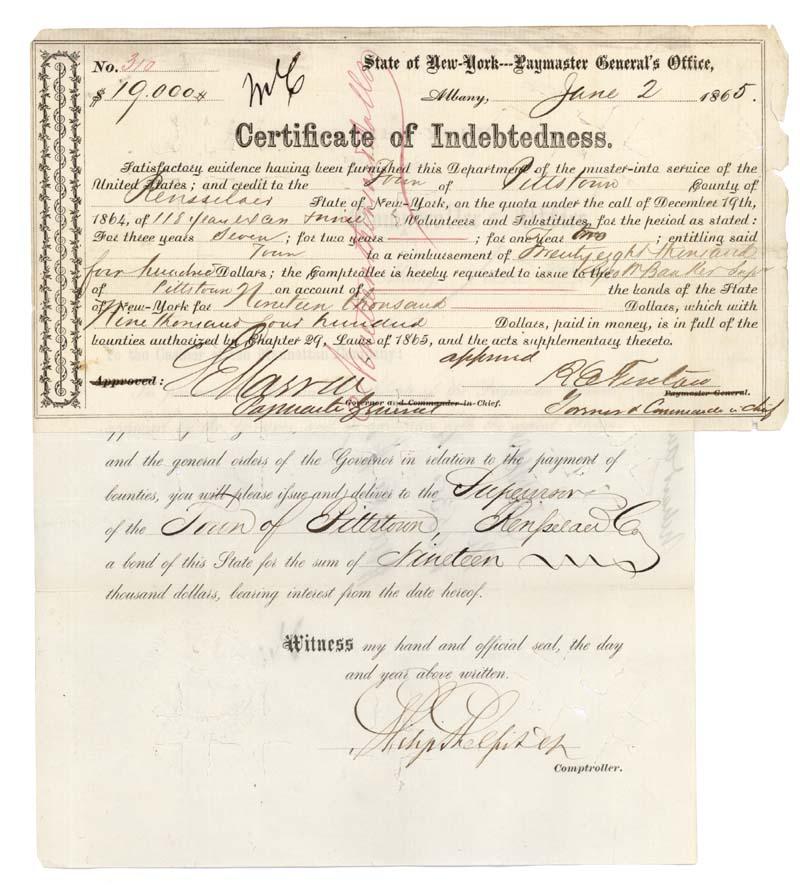 No. 310
State of New-York---Paymaster General's Office,
$ 19.000
Albany, June 2 1865.
Certificate of Indebtedness.
Satisfactory evidence having been furnished this Department of the muster-into service of the
United States; and credit to the Town of Pittstown County of
Rensselaer State of New-York, on the quota under the call of December 19th,
1864, of 118 years Volunteers and Substitutes, for the period as stated:
For three years Seven; for two years ; for one year two; entitling said
Town to a reimbursement of Twenty eight thousand
four hundred Dollars; the Comptroller is hereby requested to issue to the
of Pittstown on account of the bonds of the State
of New-York for Nineteen thousand Dollars, which with
Nine thousand four hundred Dollars, paid in money, is in full of the
bounties authorized by Chapter 29, Laws of 1865, and the acts supplementary thereto.
approved
Approved:
Governor and Commander-in-Chief.
Paymaster-General.
Paymaster General
Governor & Commander in Chief
and the general orders of the Governor in relation to the payment of
bounties, you will please issue and deliver to the Supervisor
of the Town of Pittstown, Rensselaer Co
a bond of this State for the sum of Nineteen
thousand dollars, bearing interest from the date hereof.
Witness my hand and official seal, the day
and year above written.
Comptroller.